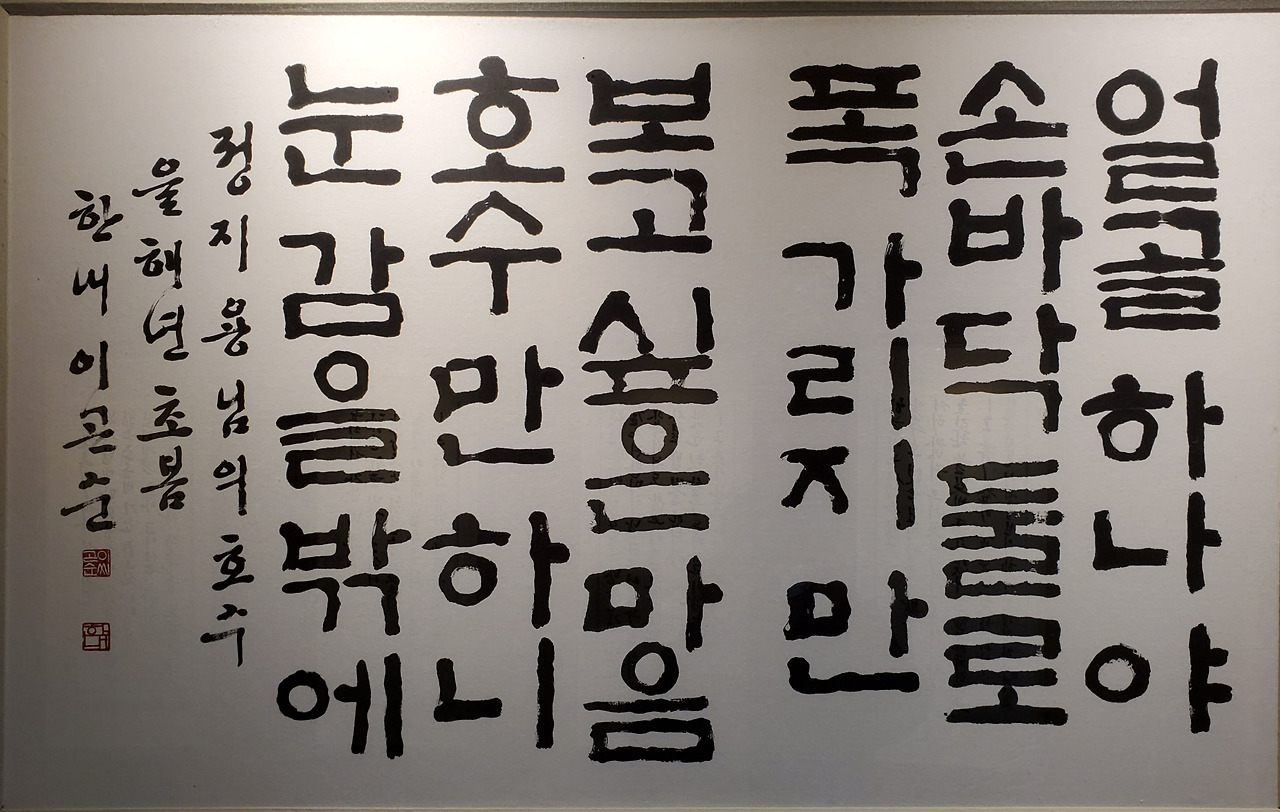 얼골 하나야
손바닥 둘로
폭 가리지만
보고 싶은 마음
호수만 하니
눈 감을 밖에
정지용님의 호수
을해년 초봄
한내 이곤순
이씨곤순
한내